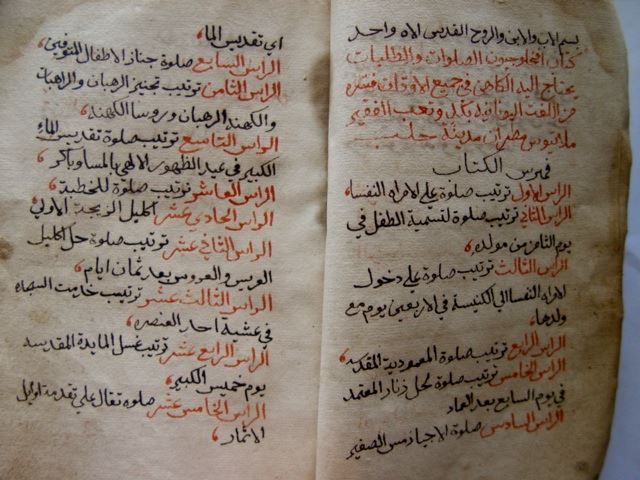 بسم الاب والابن والروح القدس الاه واحد
كتاب افخولوجيون الصلوات والطلبات
يحتاج اليه الكاهن في جميع الاوقات فسره
من اللغت اليونانيه بكد وتعب الفقير
ملاتيوس مطران مدينة حلب
فهرس الكتاب
الراس الاول ترتيب صلوة علي الامراه النفسا
الراس الثاني ترتيب صلوة لتسمية الطفل في
يوم الثامن من مولده
الراس الثالث ترتيب صلوة علي دخول
الامراه النفسا الي الكنيسة في الاربعين يوم مع
ولدها
الراس الرابع ترتيب صلوة المعمودية المقدسه
الراس الخامس ترتيب صلوة لحل زنار المعتمد
في يوم السابع بعد العماد
الراس السادس صلوة الاجيازمس الصغير
اي تقديس الما
الراس السابع صلوة جناز الاطفال المتوفين
الراس الثامن ترتيب تجنيز الرهبان والراهبات
والكهنة الرهبان وروسا الكهنة
الراس التاسع ترتيب صلوة تقديس الماء
الكبير في عيد الظهور الالهي بالمسا وباكر
الراس العاشر ترتيب صلوة للخطبة
الراس الحادي عشر اكليل الزيجة الاولي
الراس الثاني عشر ترتيب صلوة حل اكليل
العريس والعروس بعد ثمان ايام
الراس الثالث عشر ترتيب خدمت السجده
في عشية احد العنصره
الراس الرابع عشر ترتيب غسل المايدة المقدسه
يوم خميس الكبير
الراس الخامس عشر صلوه تقال علي تقدمة اوايل
الاثمار